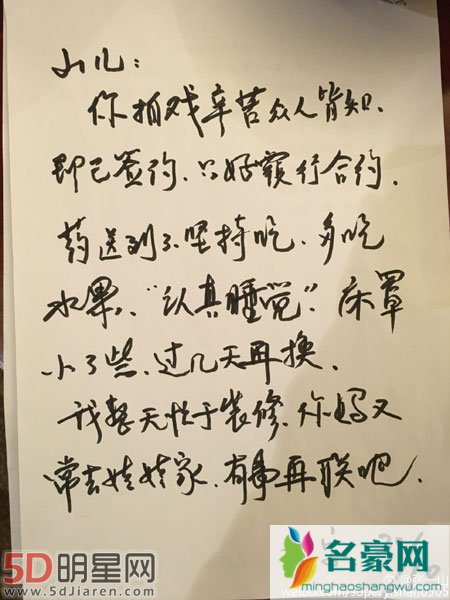 山儿：
你拍戏辛苦众人皆知、
即已签约、只好履行合约、
药送到了、坚持吃、多吃
水果、“认真睡觉”、床罩
小了些、过几天再换、
我整天忙于装修、你妈又
常去娃娃家、有事再联吧、
5D明星网
www.5dJiaren.com
名豪网
minghaoshangwu.com